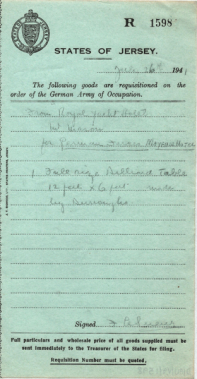 R 1598
STATES OF JERSEY.
June 16th 1941
The following goods are requisitioned on the
order of the German Army of Occupation.
From Royal Yacht Hotel
for German
1 Full size Billiard Table
12 feet x 6 feet made
by Burroughs
Signed
Full particulars and wholesale price of all goods supplied must be
sent immediately to the Treasurer of the States for filing.
Requisition Number must be quoted.